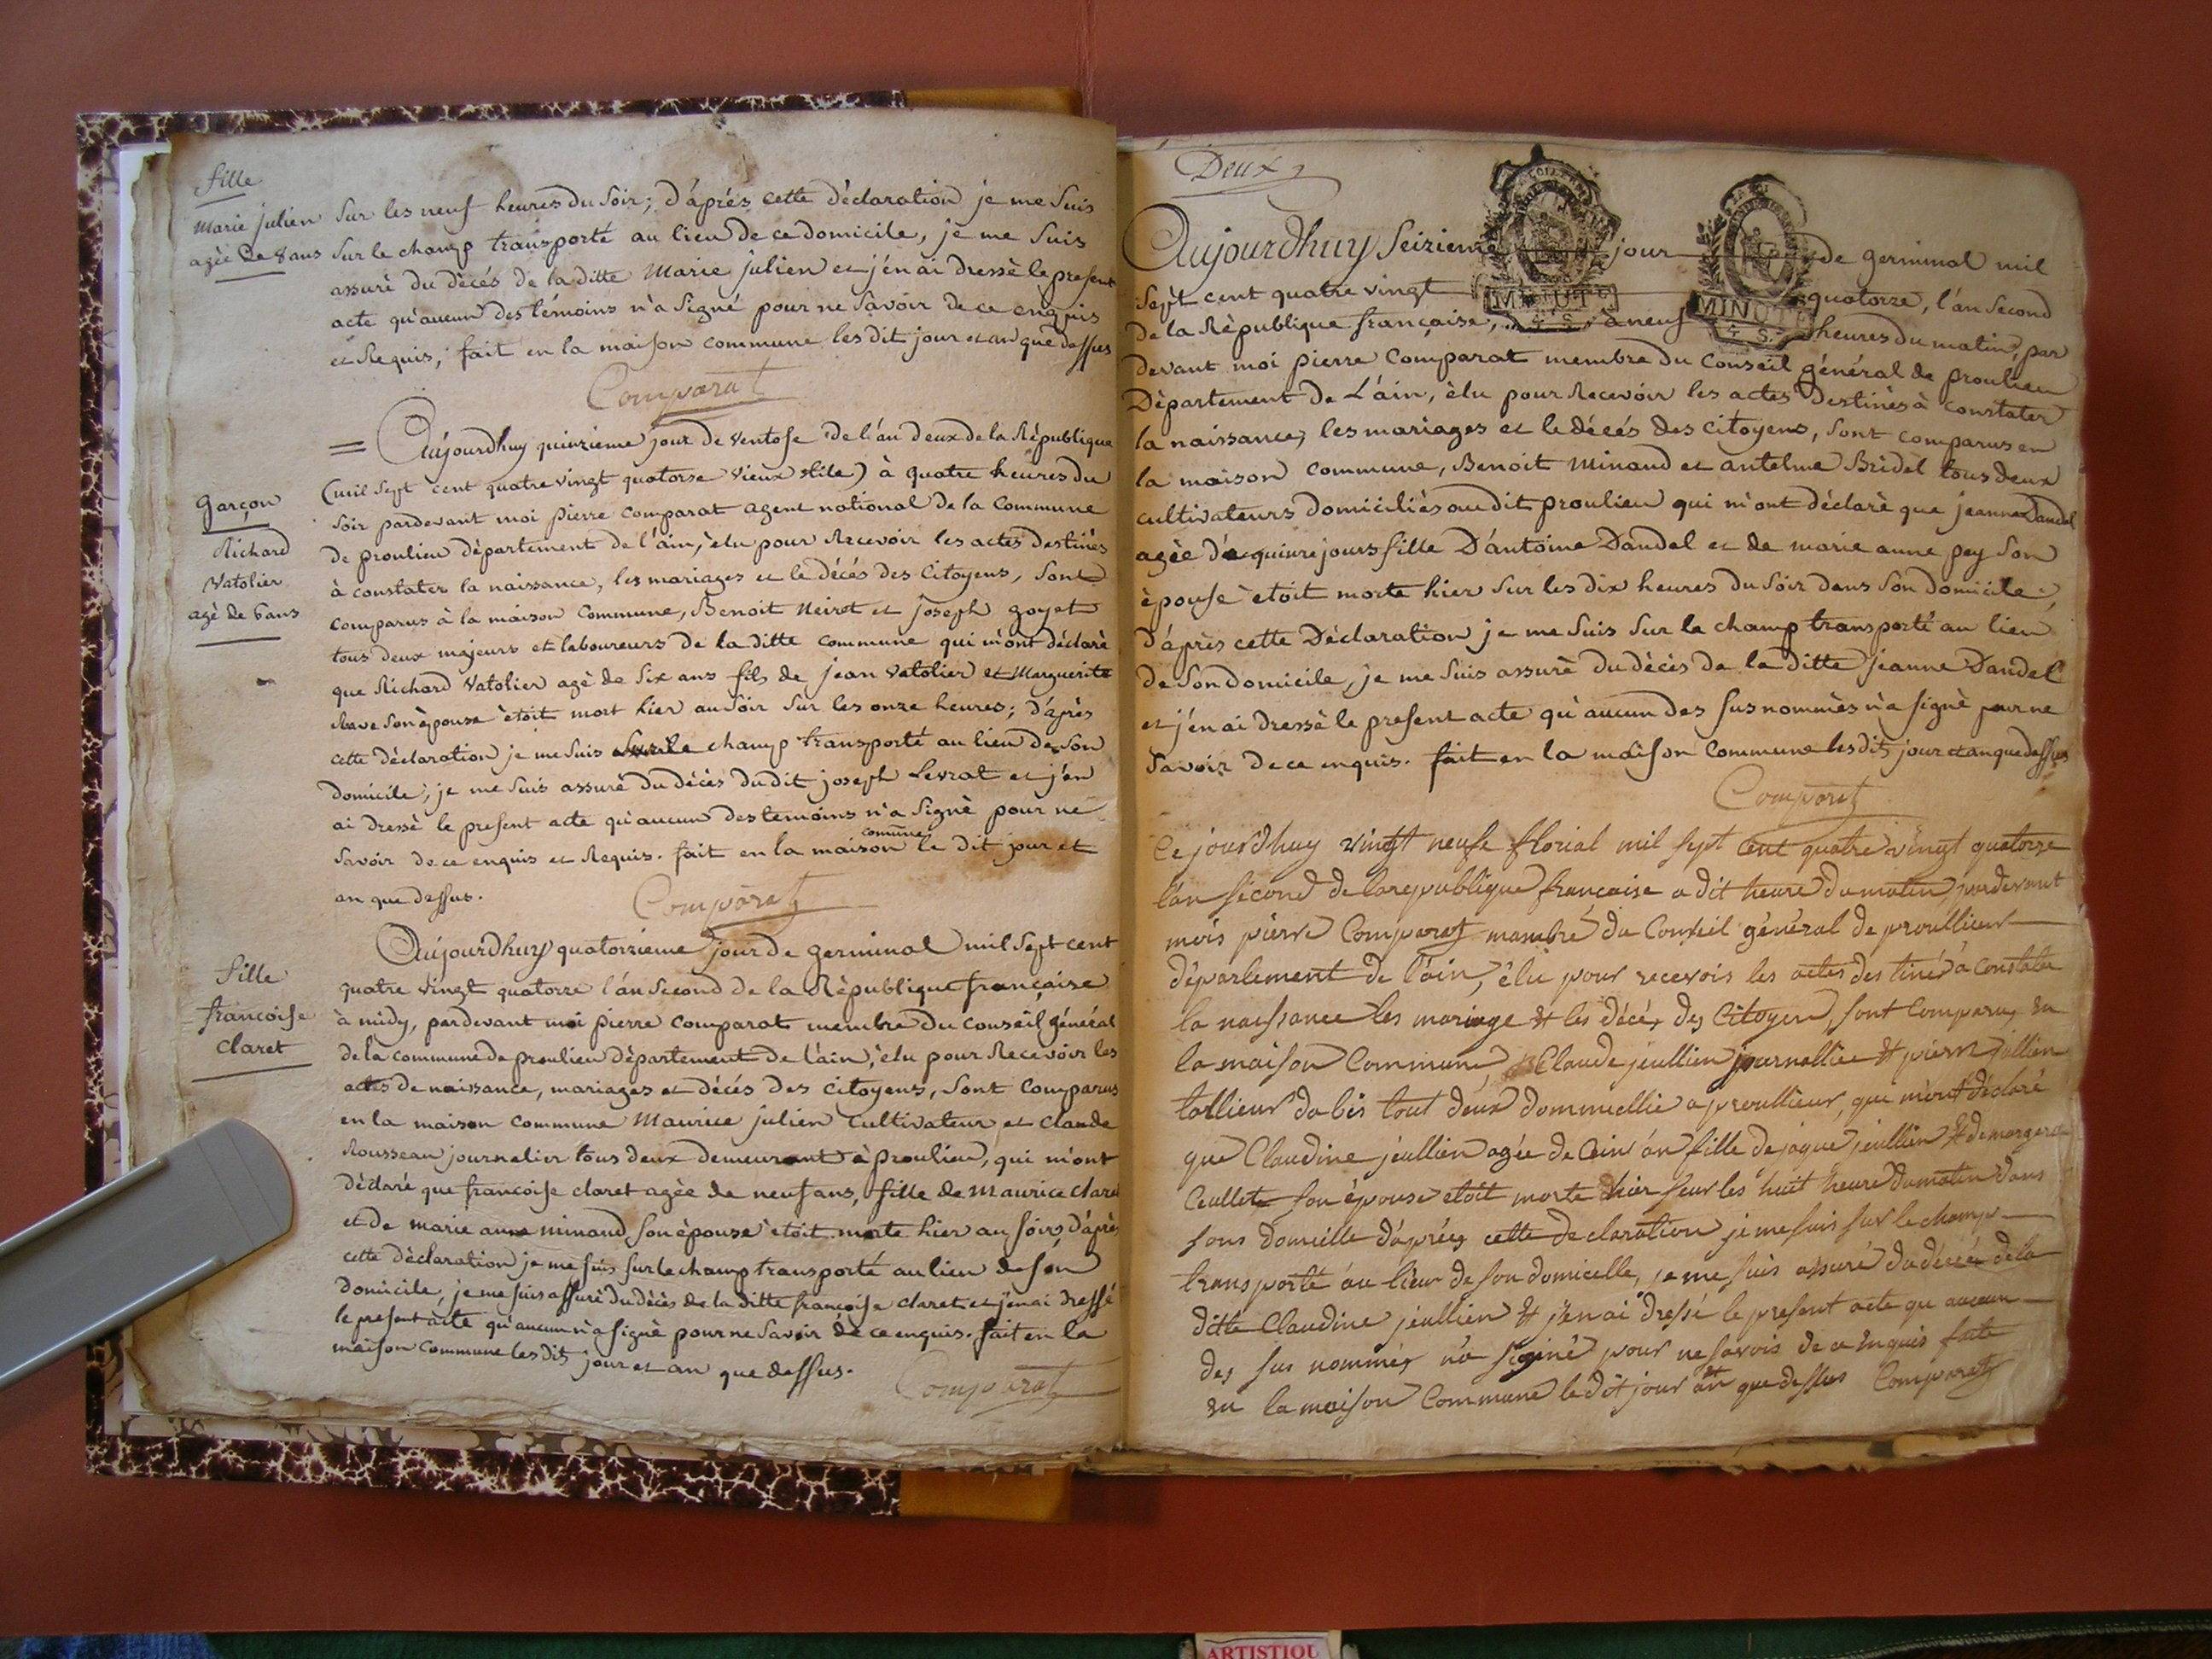 fille
Marie julien
agée de 8 ans
Sur les neuf heures du Soir; d'après cette déclaration je me Suis
Sur le champ transporté au lieu de ce domicile, je me Suis
assuré du décés de la ditte Marie julien et j'en ai dressé le present
acte qu'aucun des témoins n'a Signé pour ne Savoir de ce enquis
et Requis, fait en la maison commune les dit jour et an que dessus
Comparat
= Aujourdhuy quinzieme jour de Ventose de l'an deux de la République
(mil Sept cent quatre vingt quatorse vieux stile) à quatre heures du
Soir pardevant moi pierre comparat agent national de la Commune
de proulieu département de l'ain, élu pour Recevoir les actes destinés
à constater la naissance, les mariages et le décés des Citoyens, Sont
comparus à la maison Commune, Benoit Neirot et joseph goyet
tous deux majeurs et laboureurs de la ditte commune qui m'ont déclaré
que Richard Vatolier agé de Six ans fils de jean Vatolier et Marguerite
Rave Son épouse étoit mort hier au Soir Sur les onze heures; d'après
cette déclaration je me Suis Sur le champ transporté au lieu de Son
domicile; je me Suis assuré du décés du dit joseph Levrat et j'en
ai dressé le present acte qu'aucun des temoins n'a Signé pour ne
Savoir de ce enquis et Requis. fait en la maison commune le dit jour et
an que dessus.
Comparat
garçon
Richard
Vatolier
agé de 6 ans
Aujourdhuy quatorzieme jour de germinal mil Sept cent
quatre vingt quatorze l'an Second de la République française
à midy, pardevant moi pierre comparat membre du conseil général
de la commune de proulieu département de l'ain, élu pour Recevoir les
actes de naissance, mariages et décés des citoyens, Sont comparus
en la maison commune Maurice julien Cultivateur et Claude
Rousseau journalier tous deux demeurant à proulieu, qui m'ont
déclaré que francoise claret agée de neuf ans, fille de Maurice claret
et de marie anne minand Son épouse étoit morte hier au Soir, d'après
cette déclaration je me suis sur le champ transporté au lieu de son
domicile, je me suis assuré du décés de la ditte françoise claret et j'en ai dressé
le present acte qu'aucun n'a signé pour ne Savoir de ce enquis. fait en la
maison commune les dits jour et an que dessus.
Comparat
fille
francoise
claret
Deux
Aujourdhuy Seizieme jour de germinal mil
Sept cent quatre vingt quatorze, l'an Second
de la République française, à neuf heures du matin, par
devant moi pierre Comparat membre du Conseil général de proulieu
Département de L'ain, élu pour Recevoir les actes Destinés à constater
la naissance, les mariages et le décés des Citoyens, Sont comparus en
la maison commune, Benoit Minand et antelme Bridel tous deux
cultivateurs domiciliés au dit proulieu qui m'ont déclaré que jeanne Dandel
agée de quinze jours fille D'antoine Dandel et de marie anne pey Son
épouse étoit morte hier Sur les dix heures du Soir dans Son domicile;
d'après cette Déclaration je me Suis Sur le champ transporté au lieu
de Son domicile, je me Suis assuré du décés de la ditte jeanne Dandel
et j'en ai dressé le present acte qu'aucun des susnommés n'a signé pour ne
Savoir de ce enquis. fait en la maison Commune les dits jour et an que dessus
Comparat
MINUTE
MINUTE
4 S.
4 S.
Ce jourdhuy vingt neufe florial mil sept cent quatre vingt quatorze
l'an second de la republique francaise a dit heure du matin, pardevant
mois pierre Comparat mambre du Conseil général de proullieur
département de l'ain, élu pour recevois les actes destiné à constater
la naissance les mariage & les décés des Citoyen, sont comparus en
la maison Commune, Claude jeullien journallié & pierre jullien
tallieur dabis tout deux dommicellié a proullieur, que m'ont déclaré
que Claudine jeullien agée de Cinr án fille de jaque jeullien & de margerite
Ceullete son épouse etoit morte hier seur les huit heure du matin dans
sons domicille d'aprés cette declaration je me suis sur le champ
transporté au lieur de son domicelle, je me suis assuré du décée de la
ditte Claudine jeullien & j'en ai dressé le present acte qu aucun
des sus nommés n'a signé pour ne savois de ce enquis faite
en la maison Commune le dit jour & an que dessus Comparat
ARTISTIQU